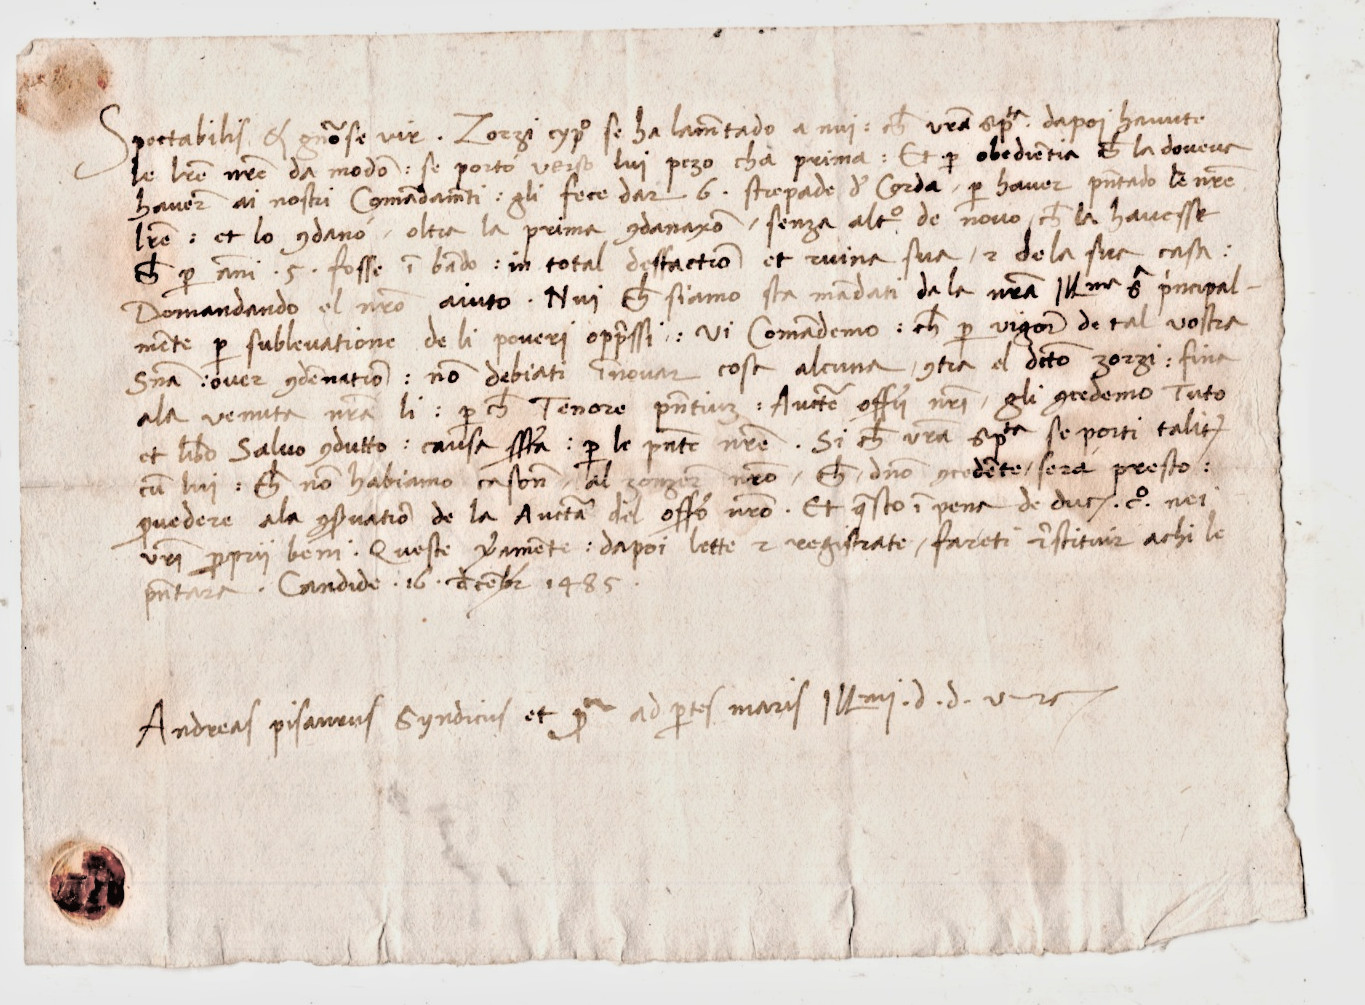 Spectabilis & gnōse vir . Zorzi cypº se ha lamētado a nui : ch̄ vrā spta . dapoi havute
le lrē nrē da modō : se portò verso lui pezo cha prima : Et p̱ obedientia ch̄ la doveva
haver̄ ai nostri Comādamēti : gli fece dar 6 . strepade d' Corda , p̱ haver pn̄tado le nrē
lrē : et lo ꝯdanò , oltra la prima ꝯdanaxō , senza altº de novo , ch̄ la havesse
ch̄ p̱ āni . 5 . fosse ī bādo : in total desfactiō et ruina sua , ⁊ de la sua casa :
Domandando el nrō aiuto . Nui ch̄ siamo sta mādati da la nrā Illma S. principal-
mēte p̱ sublevatione de li poveri opp̄ssi : Vi Comādemo : ch̄ p̱ vigor̄ de tal vostra
Snā : over ꝯdēnatiō : nō debiati īnovar cosa alcuna , ꝯtra el dctō zorzi : fina
ala venuta nrā li : p̱ ch̄ Tenore pn̄tiuꝫ : Auctē offitii nrī , gli ꝯcedemo Tuto
et libō Salvo ꝯdutto : causa sſta : p̱ le pn̄te nrē . Si ch̄ vrā spta se porti talit̄
cū lui : ch̄ nō habiamo casōn , al zonzer̄ nrō , ch̄ , dnō ꝯcedēte , serà presto :
ꝓvedere ala ꝯs̱vatiō de la Auctā del offō nrō . Et q̄sto ī pena de duc. cº. nei
vrī ꝓprii beni . Queste v̱amēte : dapoi lette ⁊ registrate , fareti r̄stituir a chi le
pn̄tara . Candide . 16 . dcēbr 1485 .
Andreas pisaurus Syndicus et ad p̱tes maris Illmi . d . d . v